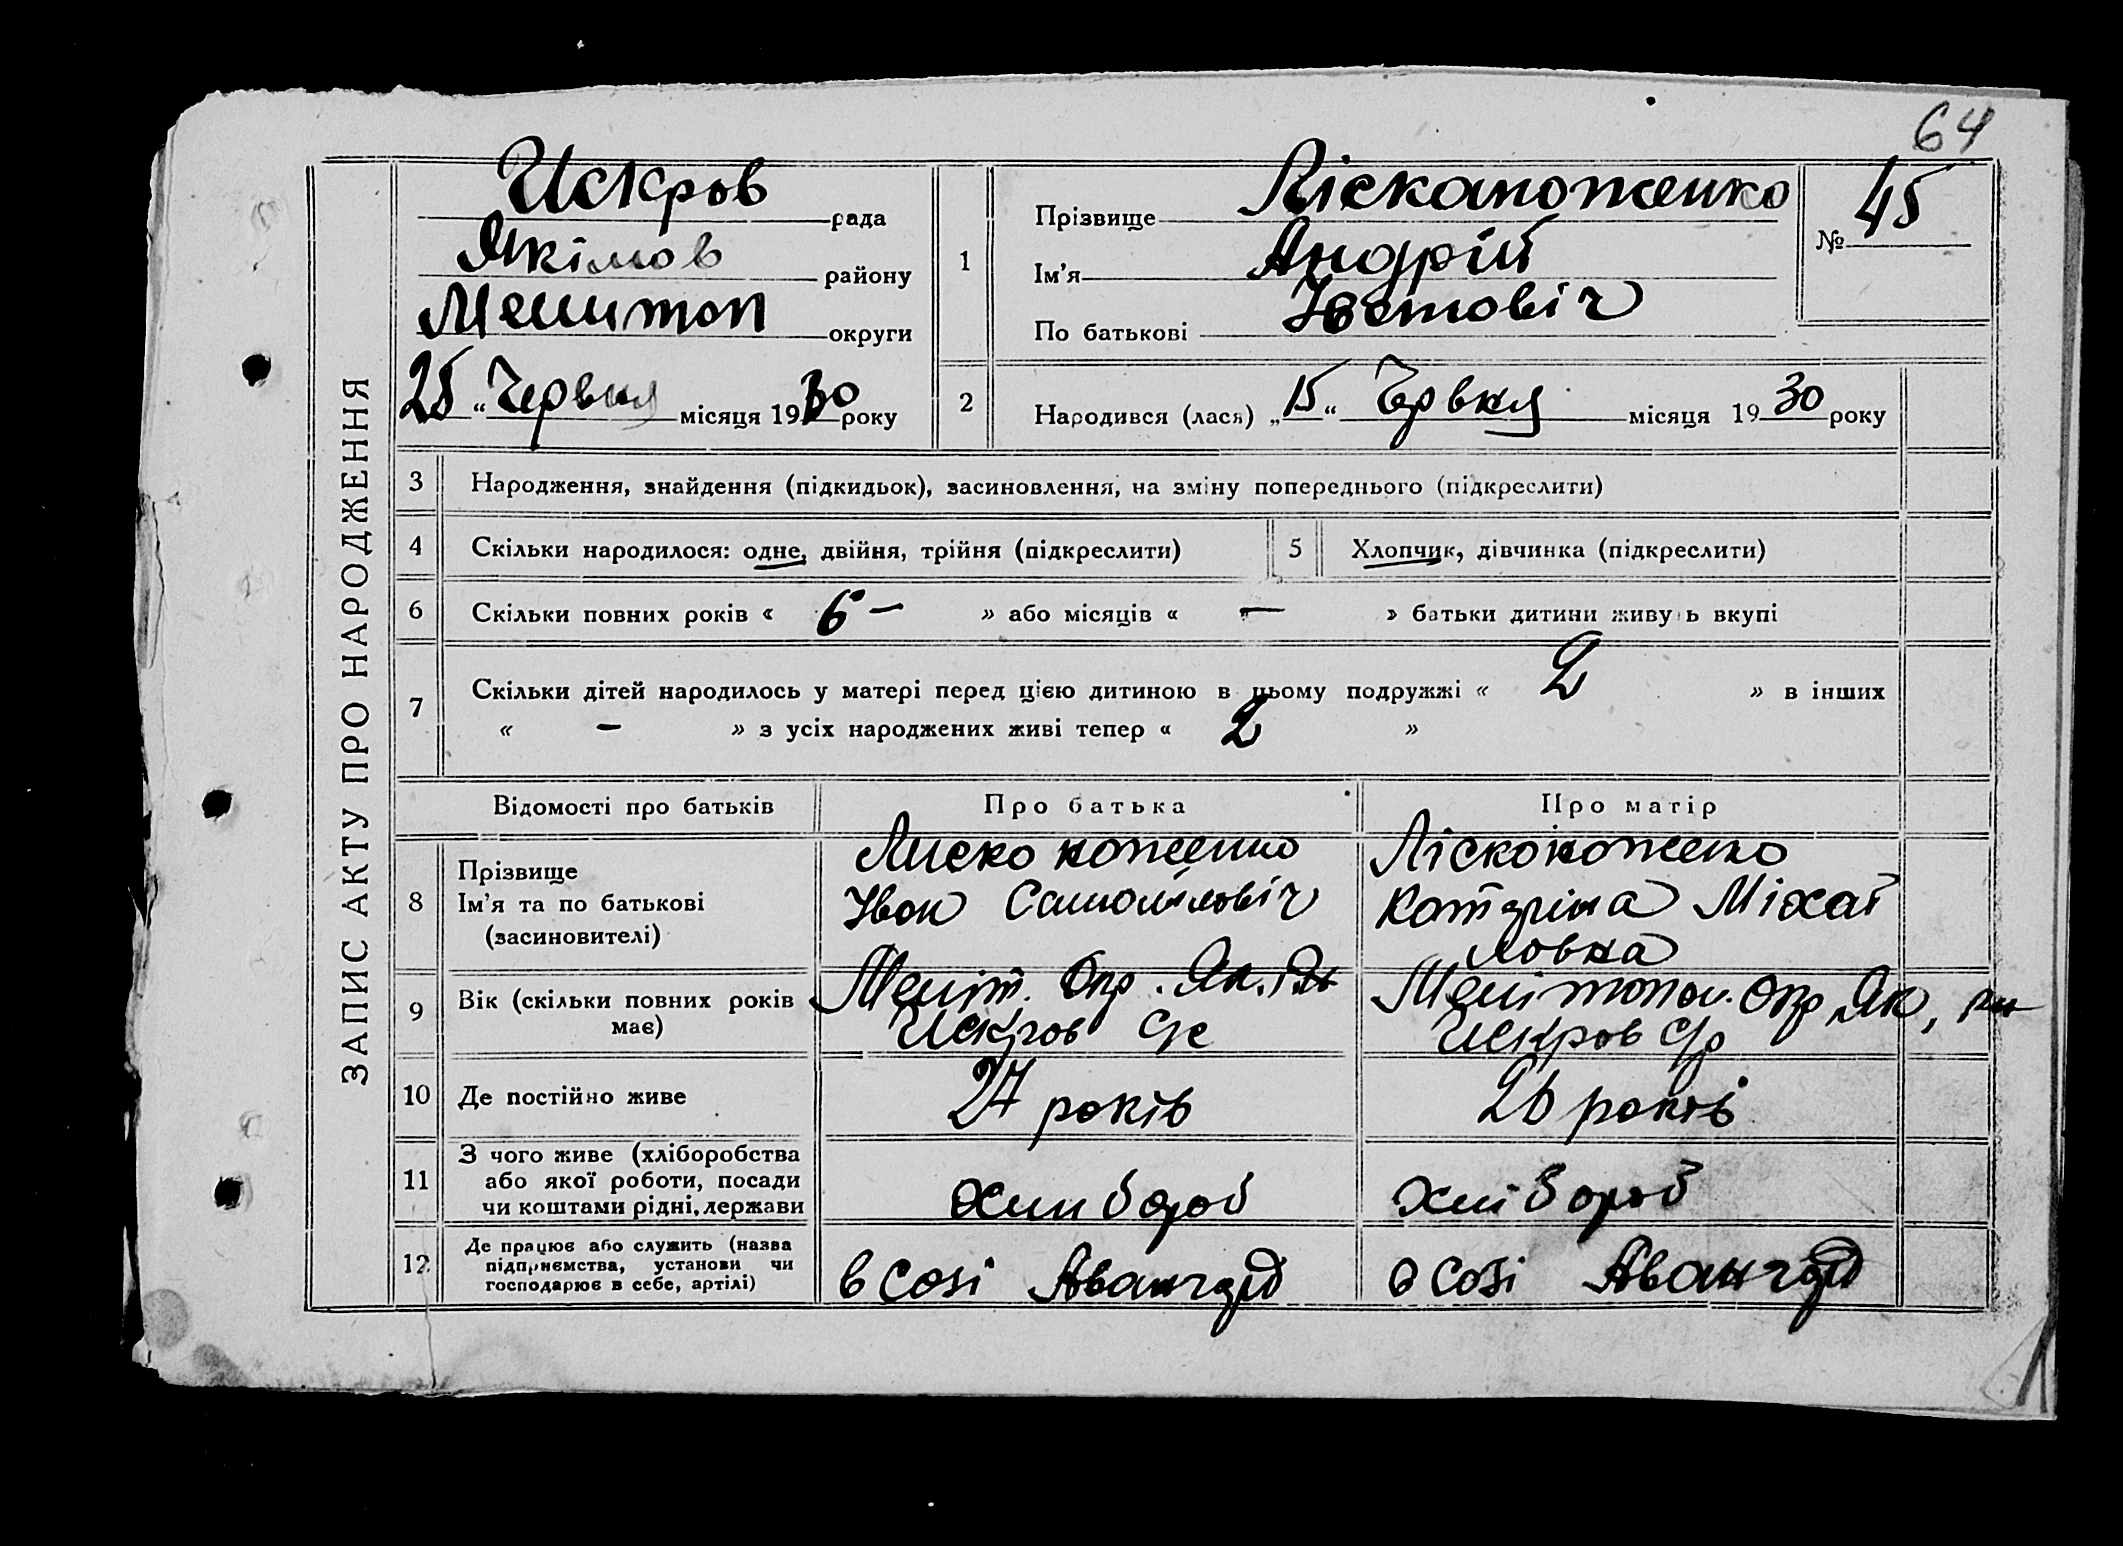 64
ЗАПИС АКТУ ПРО НАРОДЖЕННЯ
Искров рада
Якімов району
Мелитоп округи
25 „ Червня місяця 1930 року
1
Прізвище
Ім’я Андрій
По батькові Івановіч
№ 45
2
Народився (лася) „ 15 “ Червня місяця 1930 року
3 Народження, знайдення (підкидьок), засиновлення, на зміну попереднього (підкреслити)
4 Скільки народилося: одне, двійня, трійня (підкреслити)
5 Хлопчик, дівчинка (підкреслити)
6 Скільки повних років « 6 – » або місяців « – » батьки дитини живуть вкупі
7 Скільки дітей народилось у матері перед цією дитиною в цьому подружжі « 2 » в інших
« – » з усіх народжених живі тепер « 2 »
Відомості про батьків
Про батька
Про матір
8 Прізвище
Ім’я та по батькові
(засиновителі)
Іван Самойловіч
Катеріна Міхай
ловна
9 Вік (скільки повних років
має)
Меліт. Окр. Як. Рн
Искров С/с
Мелітопол. Окр Як, рн
Искров С/р
10 Де постійно живе
27 років
26 років
11 З чого живе (хліборобства
або якої роботи, посади
чи коштами рідні, держави
хлибороб
хлібороб
12 Де працює або служить (назва
підприємства, установи чи
господарює в себе, артілі)
в созі Авангард
в созі Авангард